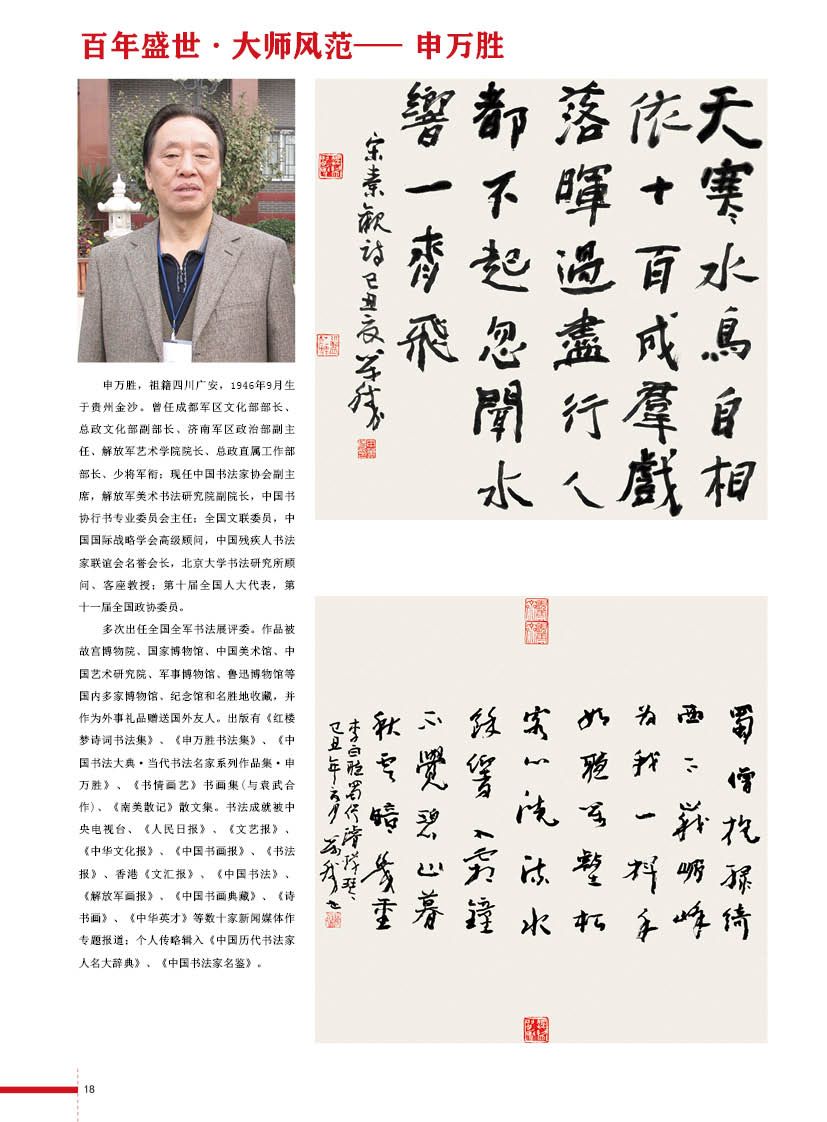 百年盛世·大师风范—— 申万胜
申万胜，祖籍四川广安，1946年9月生
于贵州金沙。曾任成都军区文化部部长、
总政文化部副部长、济南军区政治部副主
任、解放军艺术学院院长、总政直属工作部
部长、少将军衔；现任中国书法家协会副主
席，解放军美术书法研究院副院长，中国书
协行书专业委员会主任；全国文联委员，中
国国际战略学会高级顾问，中国残疾人书法
家联谊会名誉会长，北京大学书法研究所顾
问、客座教授；第十届全国人大代表，第
十一届全国政协委员。
多次出任全国全军书法展评委。作品被
故宫博物院、国家博物馆、中国美术馆、中
国艺术研究院、军事博物馆、鲁迅博物馆等
国内多家博物馆、纪念馆和名胜地收藏，并
作为外事礼品赠送国外友人。出版有《红楼
梦诗词书法集》、《申万胜书法集》、《中
国书法大典·当代书法名家系列作品集·申
万胜》、《书情画艺》书画集(与袁武合
作)、《南美散记》散文集。书法成就被中
央电视台、《人民日报》、《文艺报》、
《中华文化报》、《中国书画报》、《书法
报》、香港《文汇报》、《中国书法》、
《解放军画报》、《中国书画典藏》、《诗
书画》、《中华英才》等数十家新闻媒体作
专题报道；个人传略辑入《中国历代书法家
人名大辞典》、《中国书法家名鉴》。
天寒水鳥自相
依十百成羣戲
落暉過盡行人
都不起忽聞水
響一齊飛
宋秦觀詩己丑夏萬勝
蜀僧抱綠綺
西下峨嵋峰
为我一揮手
如聽万壑松
客心洗流水
餘響入霜鐘
不覺碧山暮
秋雲暗幾重
李白聽蜀僧濬彈琴
己丑年六月萬勝书
18